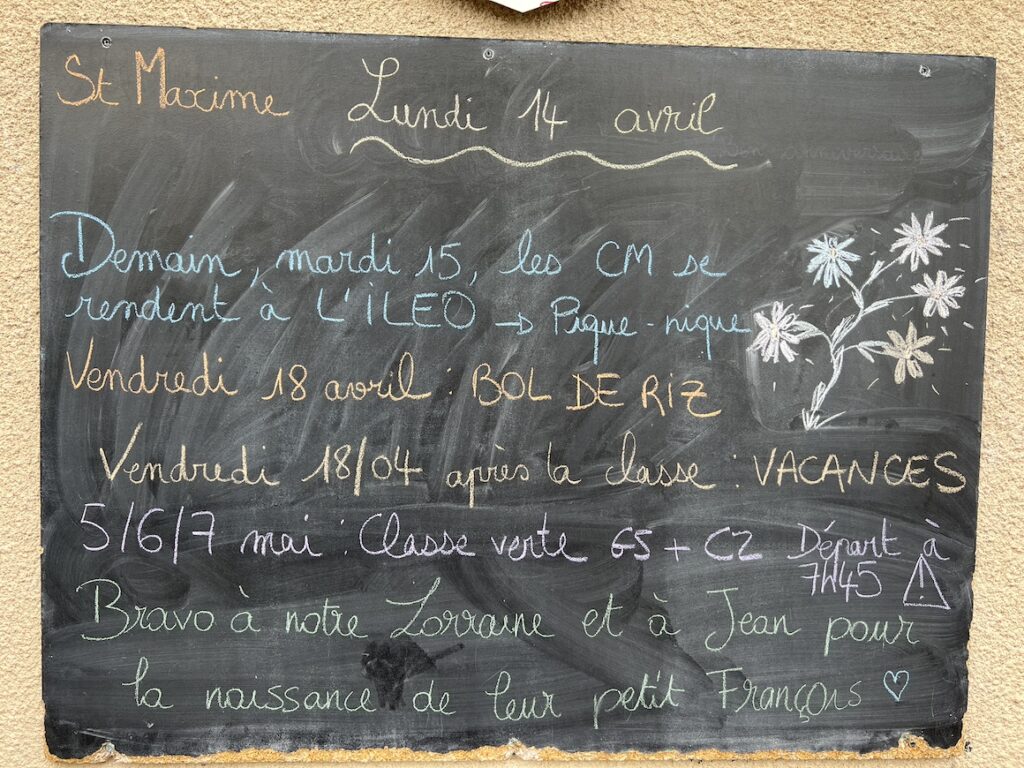 St Maxime
Lundi 14 avril
Demain, mardi 15, les CM se
rendent à L'ÎLEO → Pique-nique
Vendredi 18 avril : BOL DE RIZ
Vendredi 18/04 après la classe : VACANCES
5/6/7 mai : Classe verte GS + C2 Départ à
7H45 ⚠
Bravo à notre Lorraine et à Jean pour
la naissance de leur petit François ♡